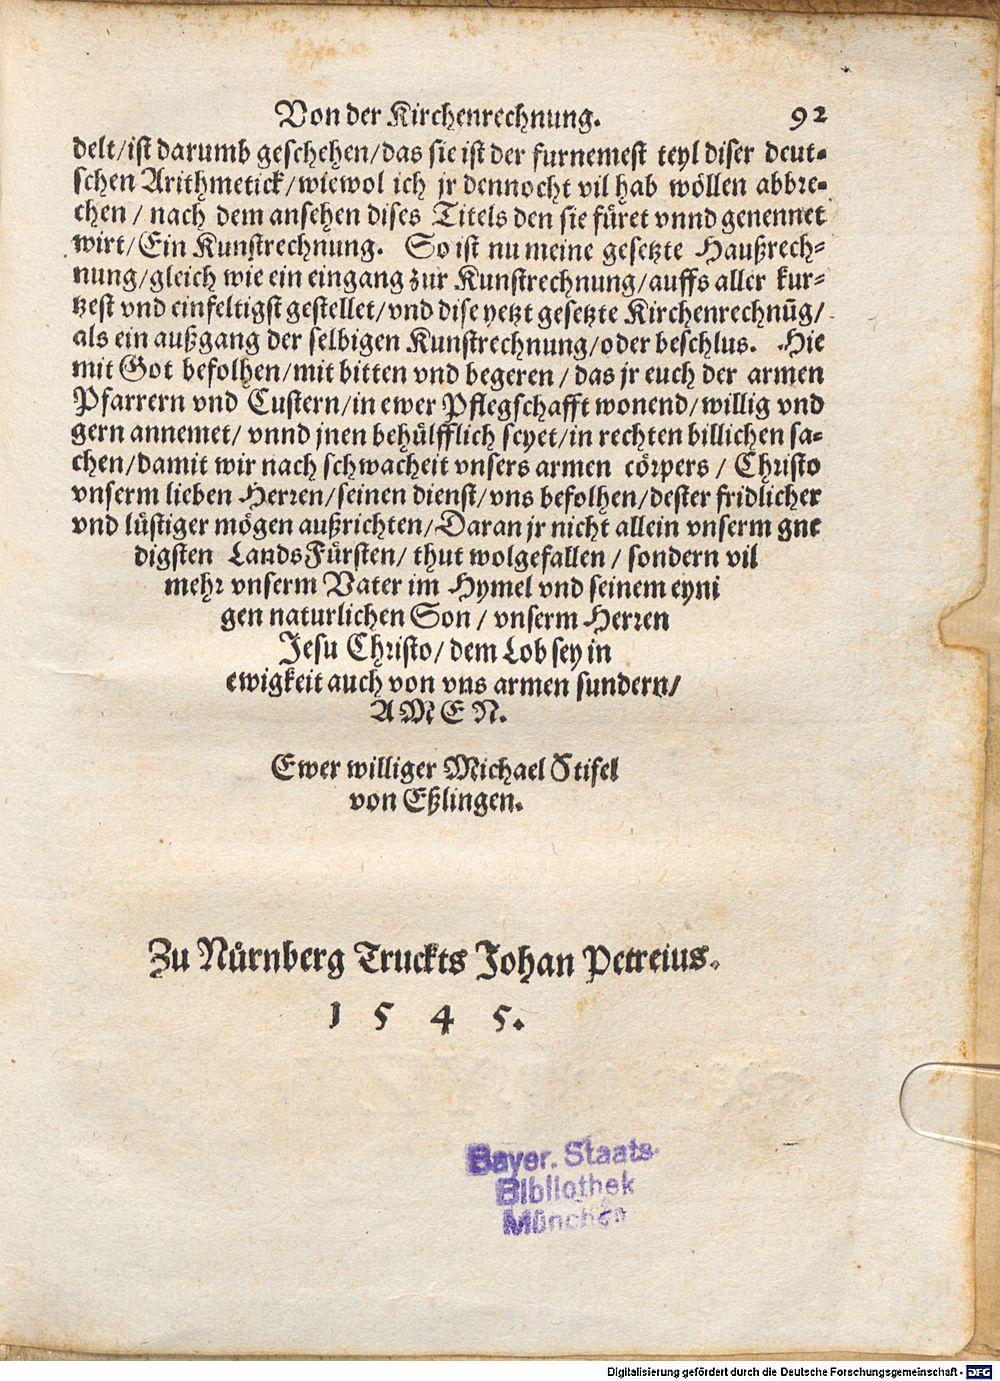 Von der Kirchenrechnung. 92
delt/ist darumb geschehen/das sie ist der furnemest teyl diser deut-
schen Arithmetick/wiewol ich jr dennocht vil hab wöllen abbre-
chen / nach dem ansehen dises Titels den sie füret vnnd genennet
wirt/Ein Kunstrechnung. So ist nu meine gesetzte Haußrech-
nung/gleich wie ein eingang zur Kunstrechnung/auffs aller kur-
tzest vnd einfeltigst gestellet/vnd dise yetzt gesetzte Kirchenrechnūg/
als ein außgang der selbigen Kunstrechnung/oder beschlus. Hie
mit Got befolhen/mit bitten vnd begeren / das jr euch der armen
Pfarrern vnd Custern/in ewer Pflegschafft wonend/willig vnd
gern annemet/ vnnd jnen behülfflich seyet/in rechten billichen sa-
chen/damit wir nach schwacheit vnsers armen cörpers / Christo
vnserm lieben Herren/seinen dienst/vns befolhen/dester fridlicher
vnd lüstiger mögen außrichten/Daran jr nicht allein vnserm gne
digsten LandsFürsten/ thut wolgefallen / sondern vil
mehr vnserm Vater im Hymel vnd seinem eyni
gen naturlichen Son / vnserm Herren
Jesu Christo/ dem Lob sey in
ewigkeit auch von vns armen sundern/
AMEN.
Ewer williger Michael Stifel
von Eßlingen.
Zu Nürnberg Truckts Johan Petreius.
1 5 4 5.
Bayer. Staats-
Bibliothek
München
Digitalisierung gefördert durch die Deutsche Forschungsgemeinschaft - DFG